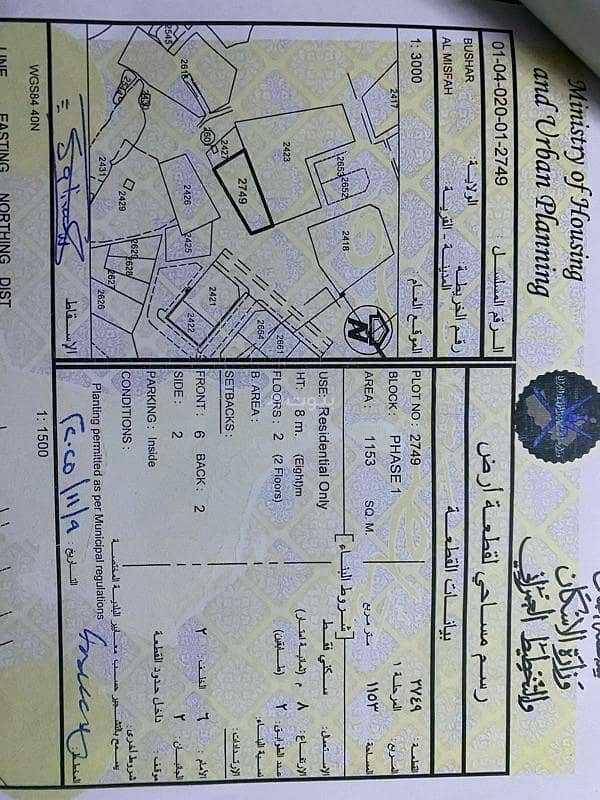 Ministry of Housing
and Urban Planning
وزارة الإسكان
والتخطيط العمراني
رسم مساحي لقطعة أرض
01-04-020-01-2749
الرقم المسلسل :
BUSHAR
الولاية :
رقم الخريطة :
AL MISFAH
المدينة - القرية :
1: 3000
الموقع العام :
2417
2423
2653
2652
2418
2545
2427
2749
2426
2425
2431
2429
2627
2626
2421
2422
2664
2661
N
الإسقاط
WGS84 40N
LINE EASTING NORTHING DIST
1: 1500
بيانات القطعة
PLOT NO : 2749
القطعة : ٢٧٤٩
BLOCK : PHASE 1
المربع : المرحلة ١
AREA : 1153 SQ. M.
المساحة : ١١٥٣ متر مربع
[ شروط البناء ]
USE : Residential Only
سكني فقط
HT: 8 m. (Eight)m
الإرتفاع : ٨ م (ثمانية امتار)
FLOORS : 2 (2 Floors)
عدد الطوابق : ٢ (طابقين)
B. AREA :
نسبة البناء :
SETBACKS :
الإرتدادات :
FRONT : 6 BACK : 2
الأمام : ٦ الخلف : ٢
SIDE : 2
الجانبان : ٢
PARKING : Inside
موقف : داخل حدود القطعة
CONDITIONS :
شروط أخرى :
Planting permitted as per Municipal regulations
التاريخ :
المخطط